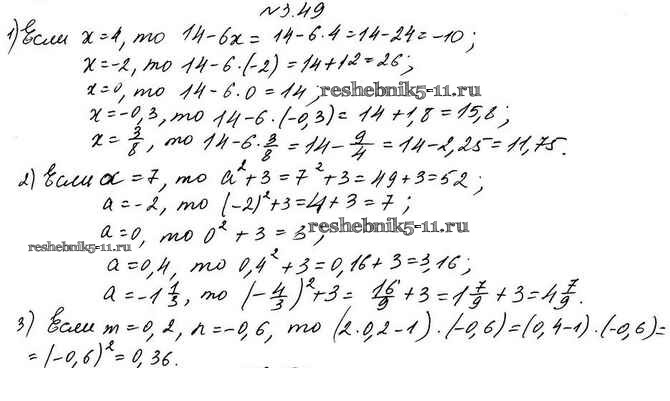 №3.49
1) Если x=4, то 14-6x = 14-6·4=14-24=-10;
x=-2, то 14-6·(-2)=14+12=26;
x=0, то 14-6·0=14; reshebnik5-11.ru
x=-0,3, то 14-6·(-0,3)= 14+1,8=15,8;
x= 3/8, то 14-6·3/8 = 14- 9/4 = 14-2,25=11,75.
2) Если a=7, то a²+3=7²+3=49+3=52;
a=-2, то (-2)²+3=4+3=7;
reshebnik5-11.ru
a=0, то 0²+3=3;
reshebnik5-11.ru
a=0,4, то 0,4²+3=0,16+3=3,16;
a=-1 1/3, то (-4/3)²+3= 16/9 +3=1 7/9 +3=4 7/9.
3) Если m=0,2, n=-0,6, то (2·0,2-1)·(-0,6)=(0,4-1)·(-0,6)=
=(-0,6)²=0,36.